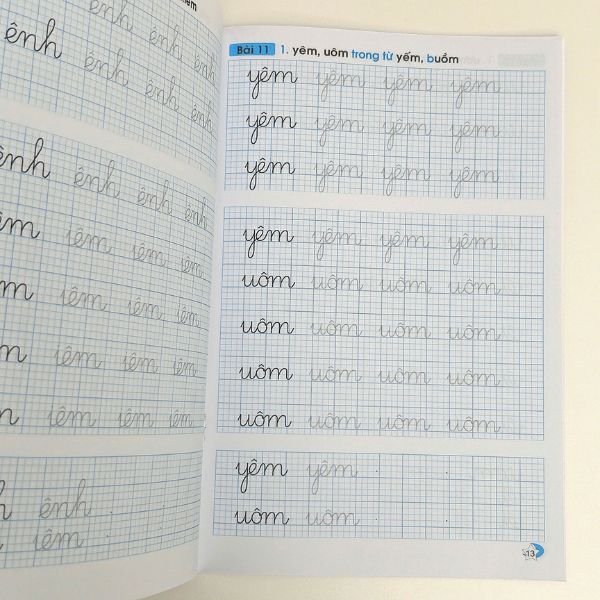 ênh ênh ênh
ênh ênh ênh ênh
ênh ênh ênh ênh
êm iêm iêm iêm
m iêm iêm iêm
m iêm iêm iêm
n iêm iêm iêm
h ênh
iêm
Bài 11 1. yêm, uôm trong từ yếm, buồm
yêm yêm yêm yêm
yêm yêm yêm yêm
yêm yêm yêm yêm
yêm yêm yêm yêm
uôm uôm uôm uôm
uôm uôm uôm uôm
uôm uôm uôm uôm
uôm uôm uôm uôm
yêm yêm
uôm uôm
13